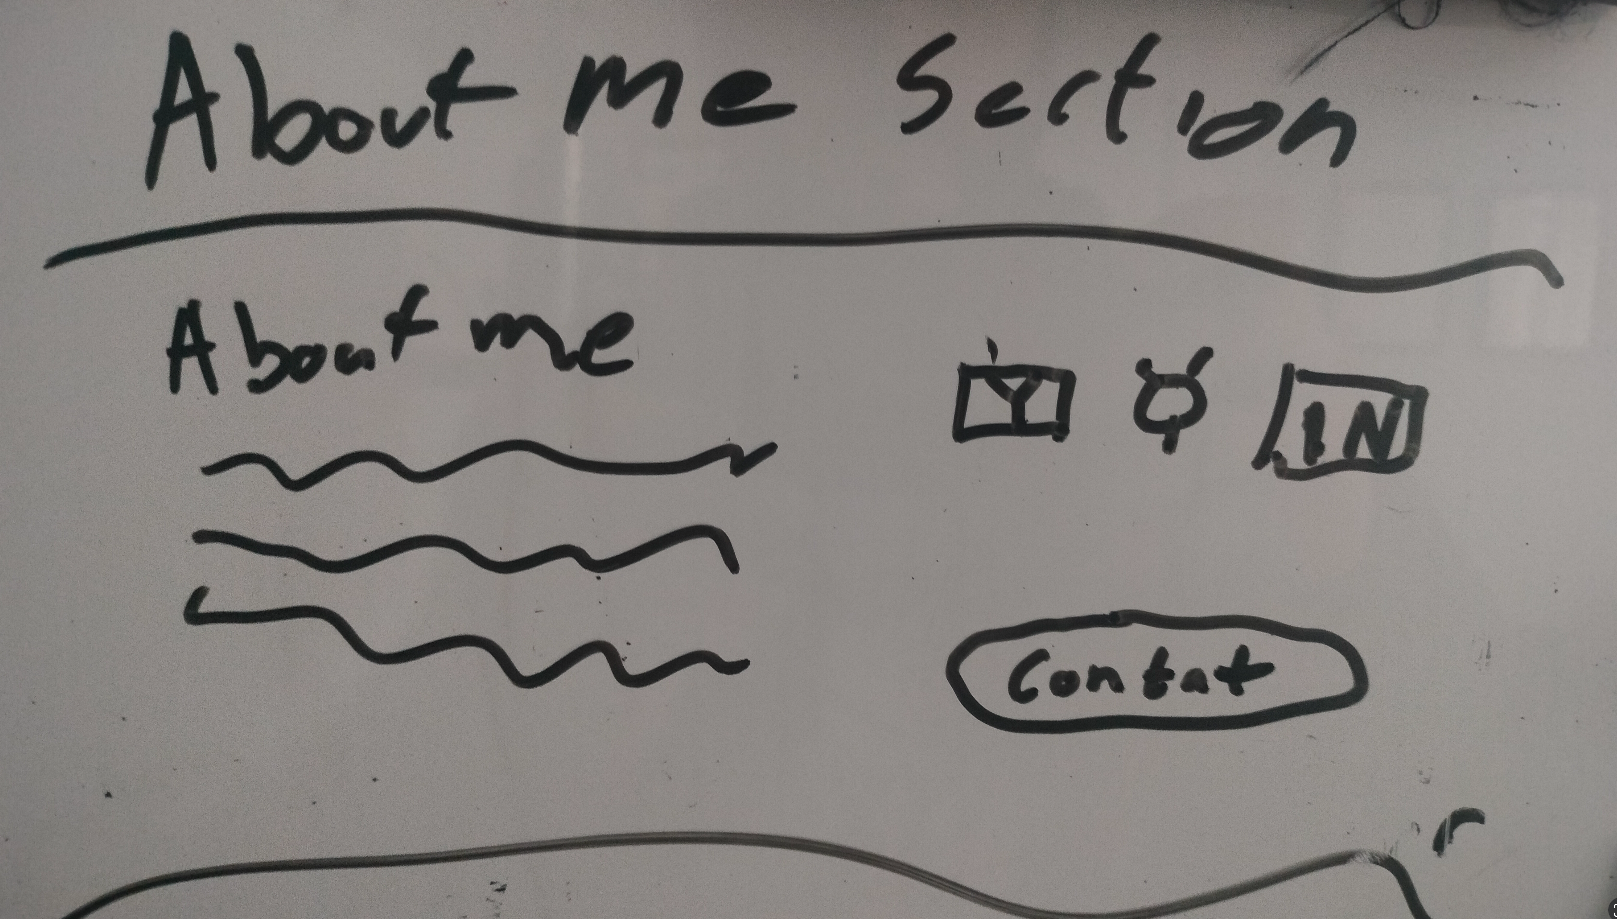 About me Section
About me
IN
Contat